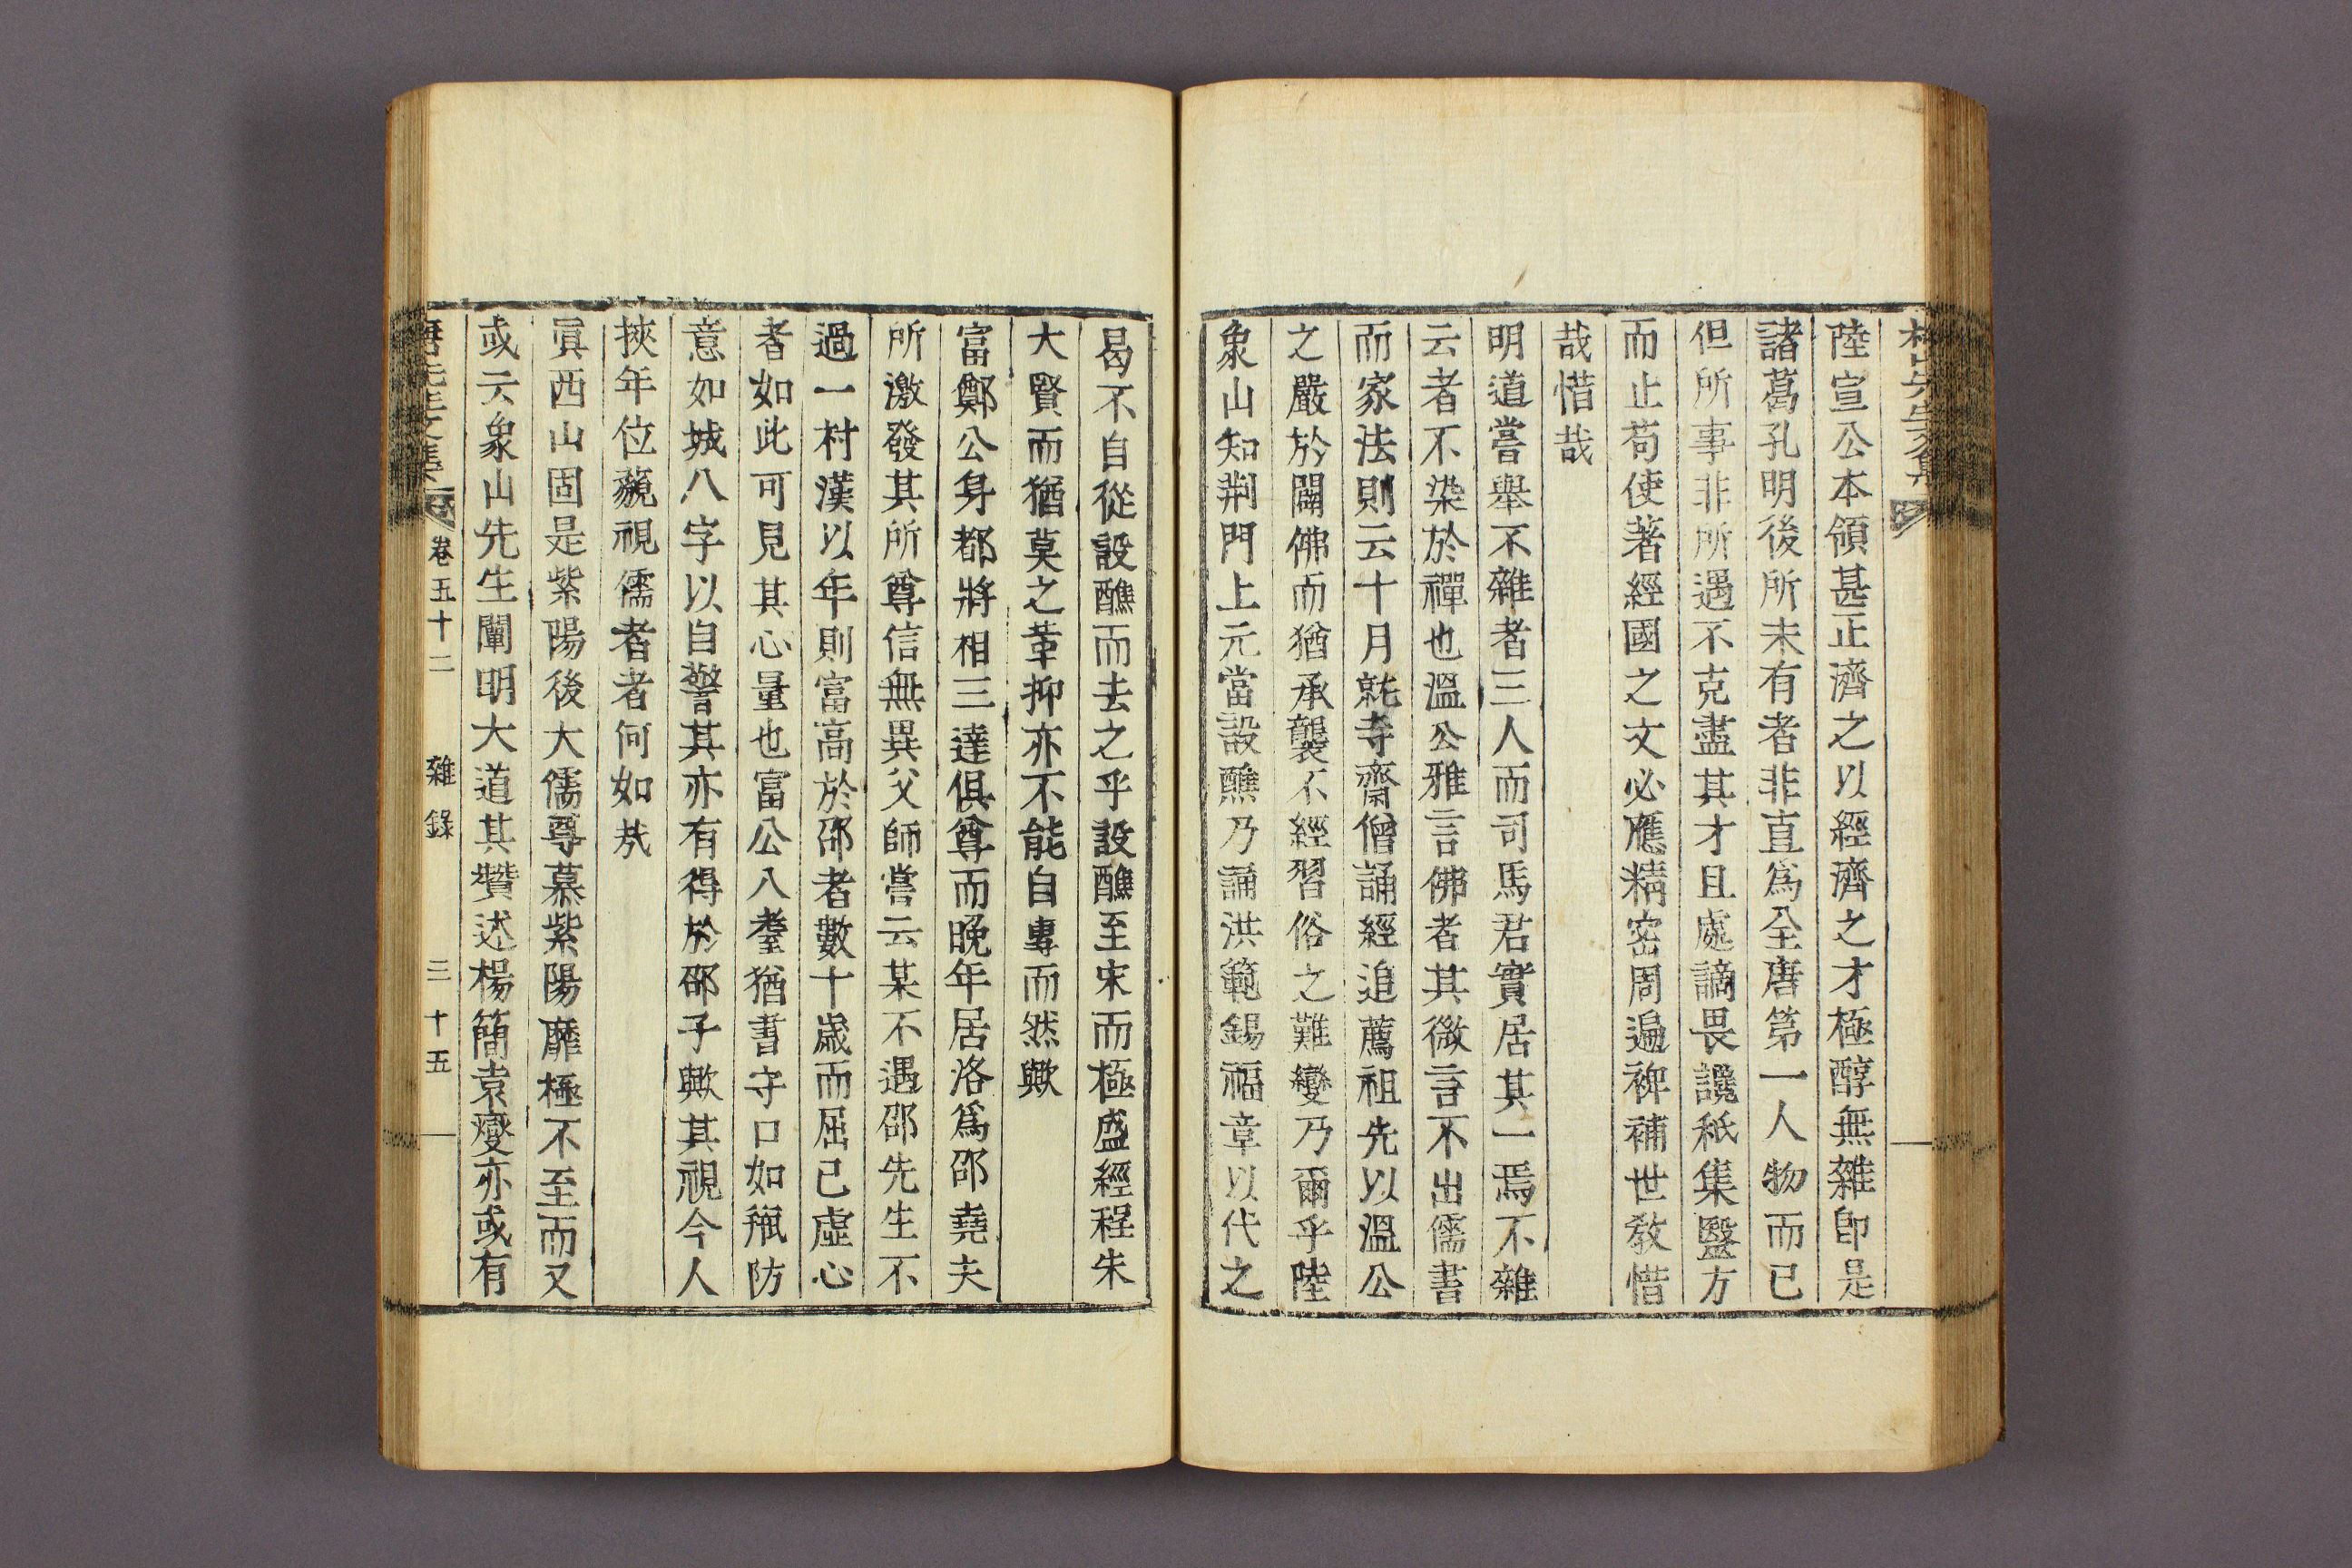 陸宣公本領甚正濟之以經濟之才極醇無雜卽是
諸葛孔明後所未有者非直爲全唐第一人物而已
但所事非所遇不克盡其才且處謫畏讒秖集醫方
而止苟使著經國之文必應精密周遍裨補世敎惜
哉惜哉
明道嘗舉不雜者三人而司馬君實居其一焉不雜
云者不染於禪也溫公雅言佛者其微言不出儒書
而家法則云十月就寺齋僧誦經追薦祖先以溫公
之嚴於闢佛而猶承襲不經習俗之難變乃爾乎陸
象山知荆門上元當設醮乃誦洪範錫福章以代之
曷不自從設醮而去之乎設醮至宋而極盛經程朱
大賢而猶莫之革抑亦不能自專而然歟
富鄭公身都將相三達俱尊而晚年居洛爲邵堯夫
所激發其所尊信無異父師嘗云某不遇邵先生不
過一村漢以年則富高於邵者數十歲而屈已虛心
者如此可見其心量也富公八耋猶書守口如甁防
意如城八字以自警其亦有得於邵子歟其視今人
挾年位藐視儒者者何如哉
眞西山固是紫陽後大儒尊慕紫陽靡極不至而又
或云象山先生闡明大道其贊述楊簡袁燮亦或有
卷五十二 雜錄 三十五